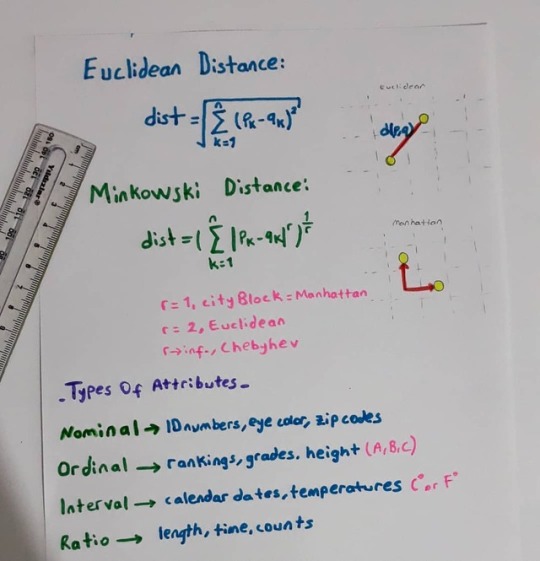 Euclidean Distance:
dist = √ n Σ k=1 (Pk - qk)²
Euclidean
d(p,q)
Minkowski Distance:
dist = ( n Σ k=1 |Pk - qk|^r )^1/r
Manhattan
r = 1, cityBlock = Manhattan
r = 2, Euclidean
r → inf., Chebyhev
- Types Of Attributes -
Nominal → ID numbers, eye color, zip codes
Ordinal → rankings, grades. height (A,B,C)
Interval → calendar dates, temperatures C° or F°
Ratio → length, time, counts